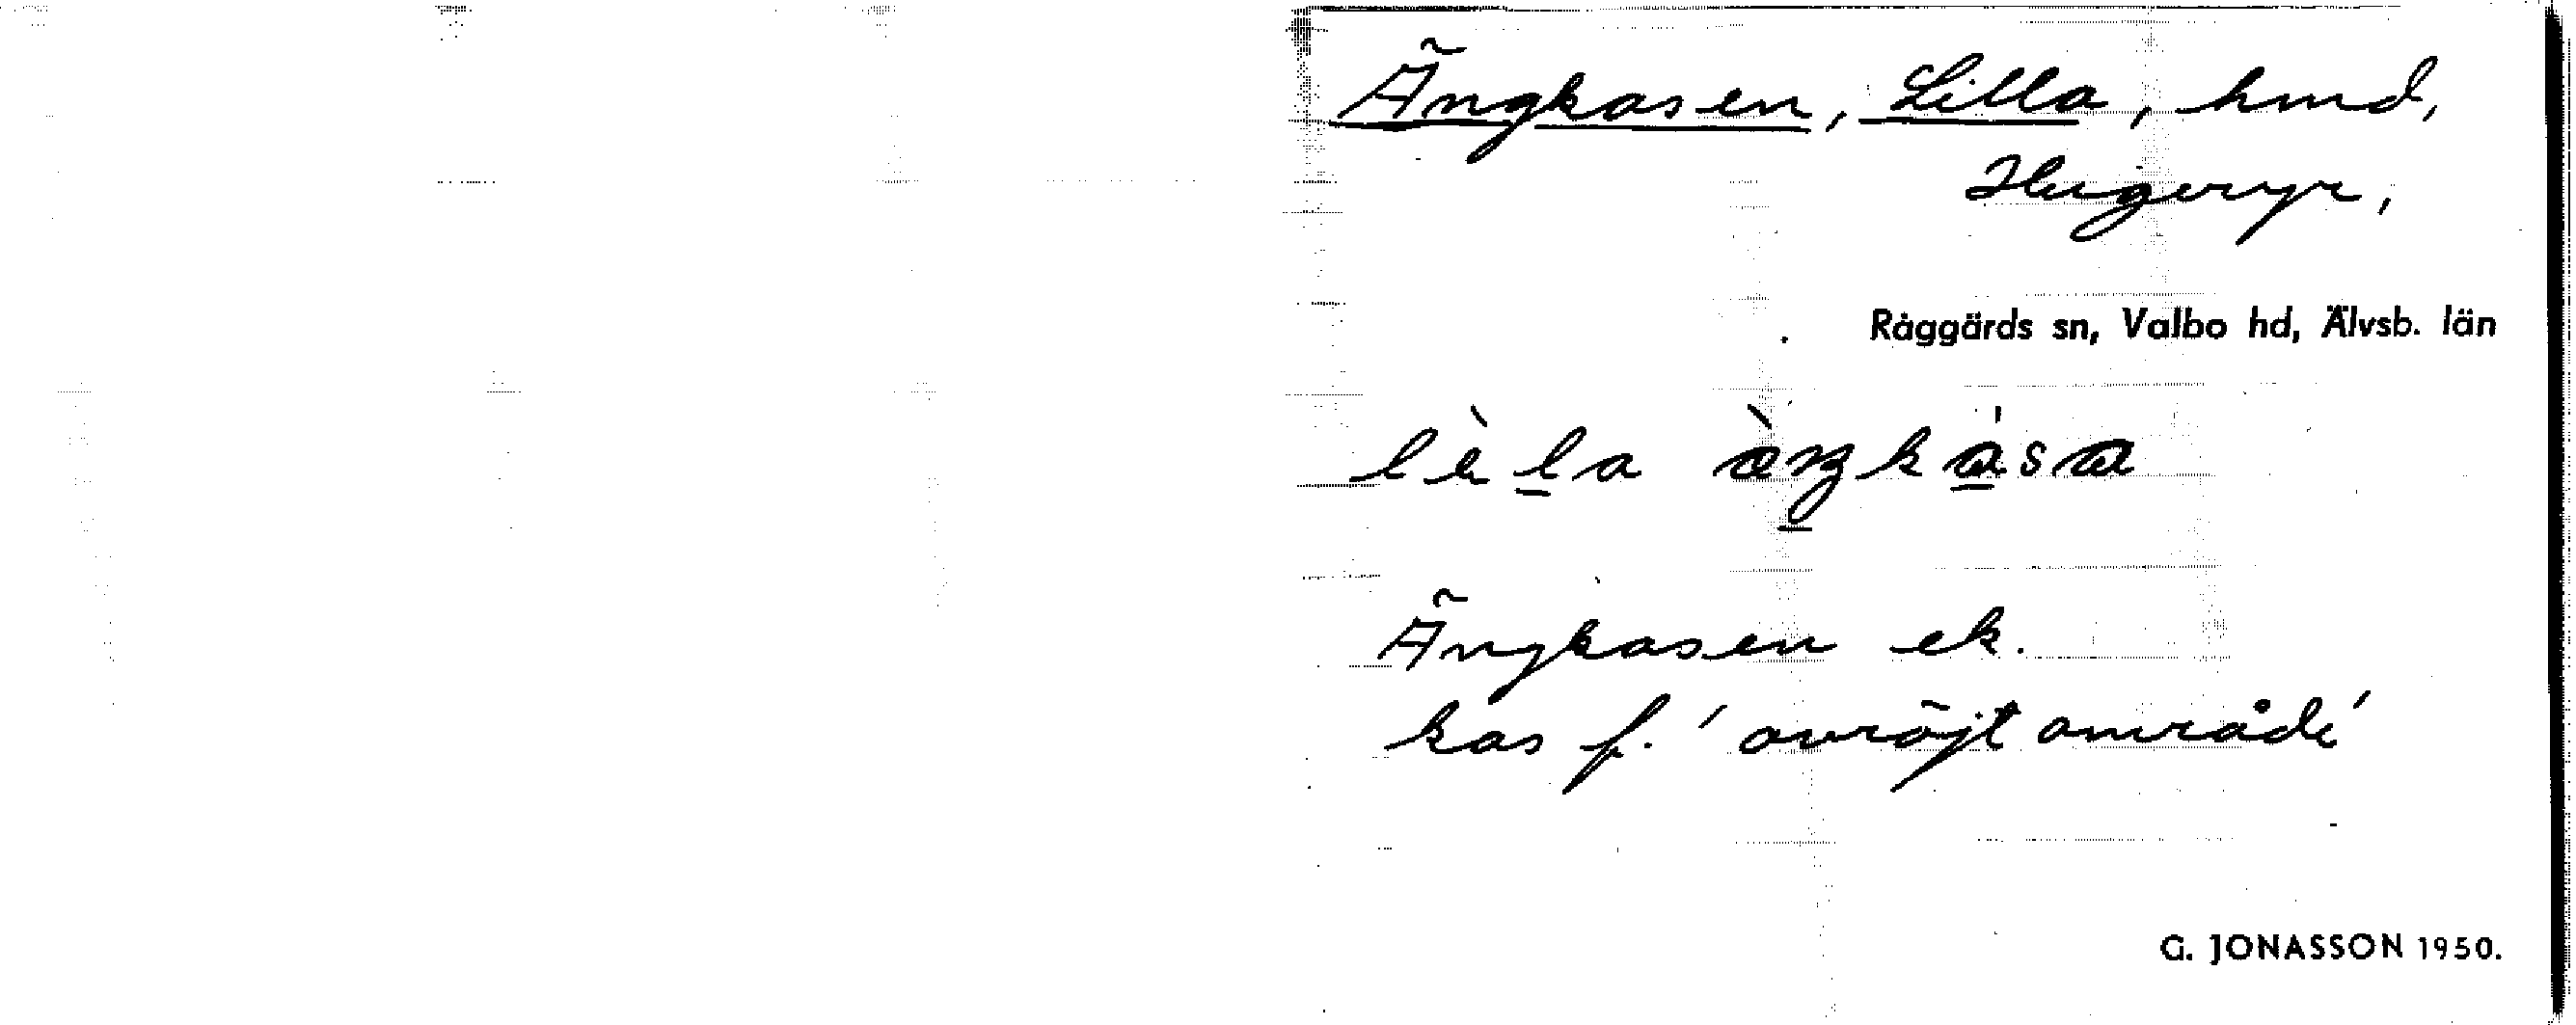 Ängkasen, Lilla, hmd,
Hugeryr,
Råggärds sn, Valbo hd, Älvsb. län
lèla
Ängkasen ek.
kas f. 'avröjt område'
G. JONASSON 1950.